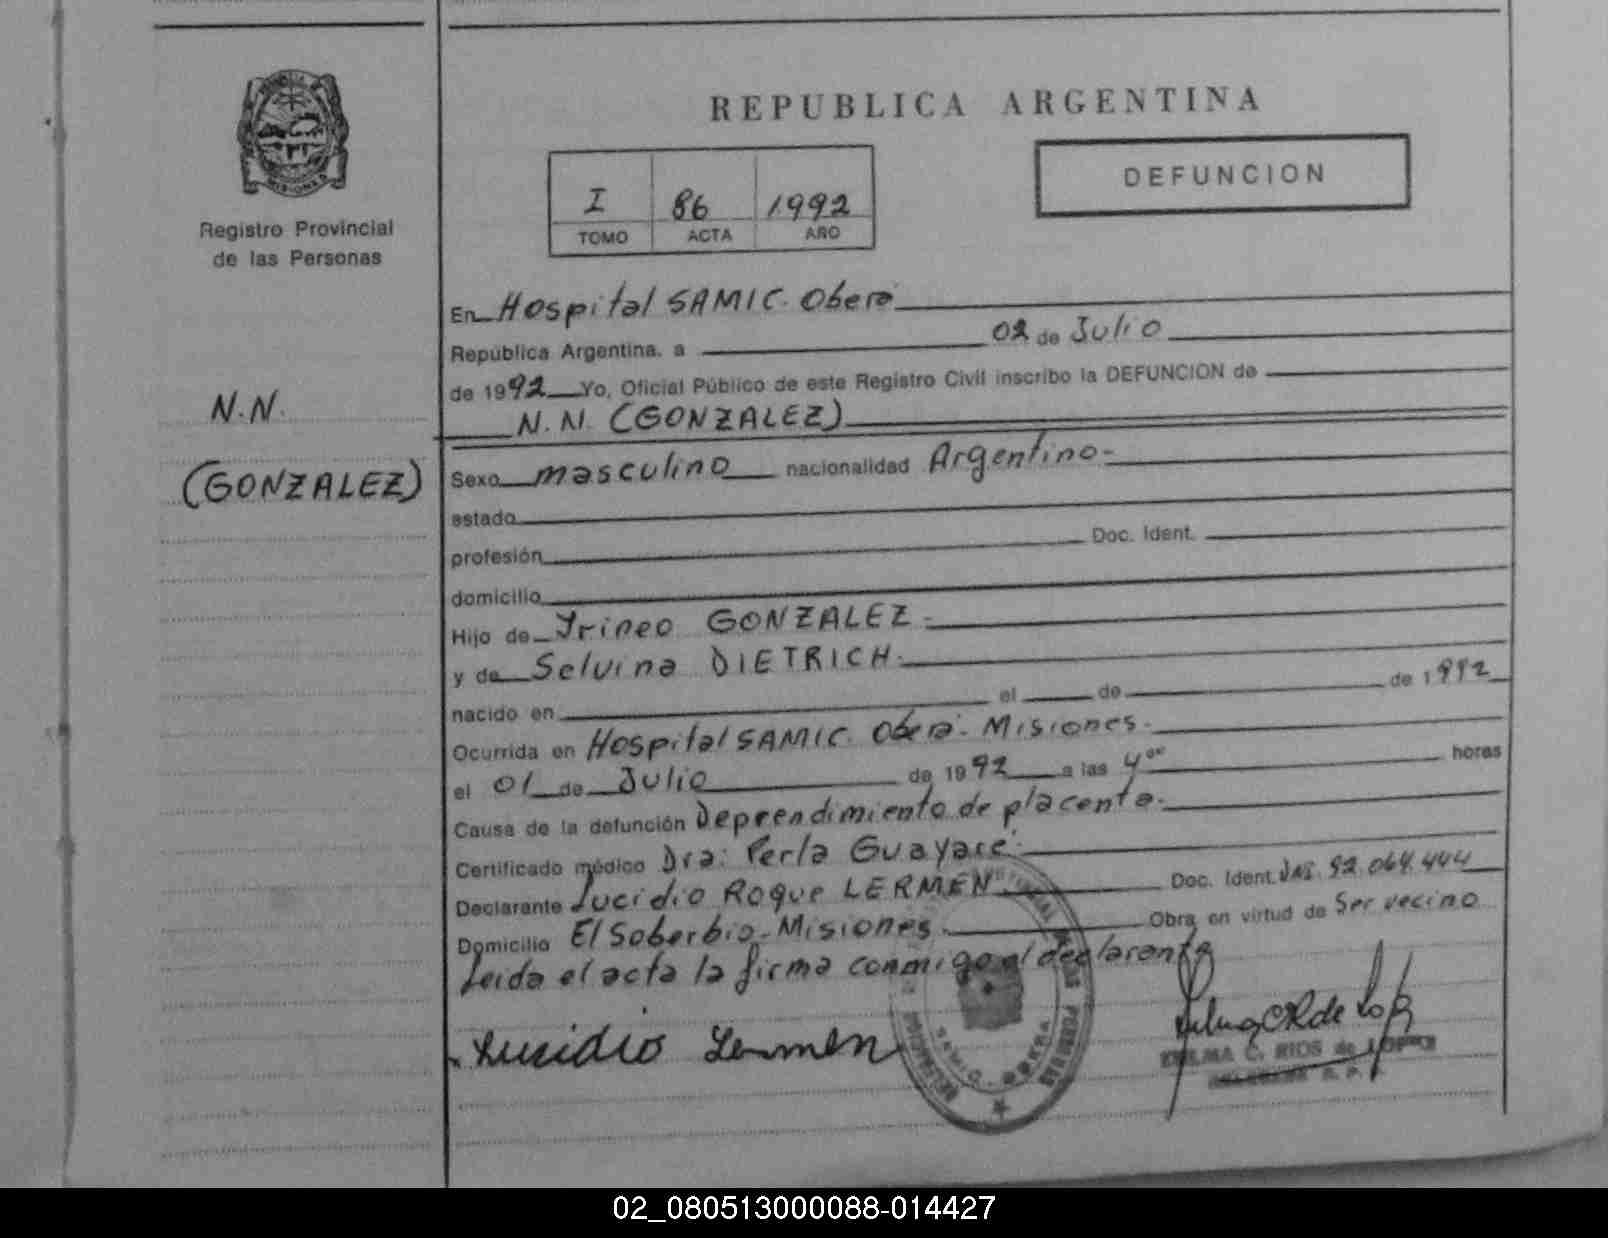 REPUBLICA ARGENTINA
MISIONES
Registro Provincial
de las Personas
I 86 1992
TOMO ACTA AÑO
DEFUNCION
N.N.
(GONZALEZ)
En Hospital SAMIC. Oberá
República Argentina, a 02 de Julio
de 1992 Yo, Oficial Público de este Registro Civil inscribo la DEFUNCION de
N.N. (GONZALEZ)
Sexo masculino nacionalidad Argentino.-
estado
profesión Doc. Ident.
domicilio
Hijo de Yrineo GONZALEZ.-
y de Selvina DIETRICH.-
nacido en el de de 1992
Ocurrida en Hospital SAMIC. Oberá. Misiones.-
el 01 de Julio de 1992 a las 4ºº horas
Causa de la defunción Deprendimiento de placenta.-
Certificado médico Dra: Perla Guayaré.
Declarante Lucidio Roque LERMEN Doc. Ident. DNI. 92.064.444
Domicilio El Soberbio-Misiones.- Obra en virtud de Ser vecino
Leída el acta la firma conmigo el declarante
Lusidio Lermen
ZULMA C. RIOS de LOPEZ
02_080513000088-014427